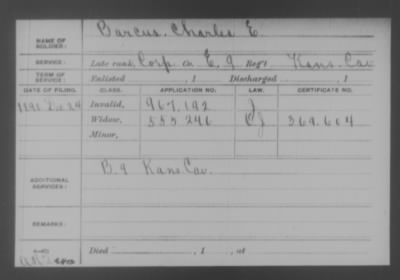 NAME OF SOLDIER: Barcus, Charles E.
SERVICE: Late rank, Corp. Co. E, 9 Reg't Kans. Cav
TERM OF SERVICE: Enlisted , 1 Discharged , 1
DATE OF FILING. CLASS. APPLICATION NO. LAW. CERTIFICATE NO.
1891 Dec 24 Invalid, 967.192 J
Widow, 555.246 C J 369.604
Minor,
ADDITIONAL SERVICES: B. 9 Kans. Cav.
REMARKS:
Died , 1 , at